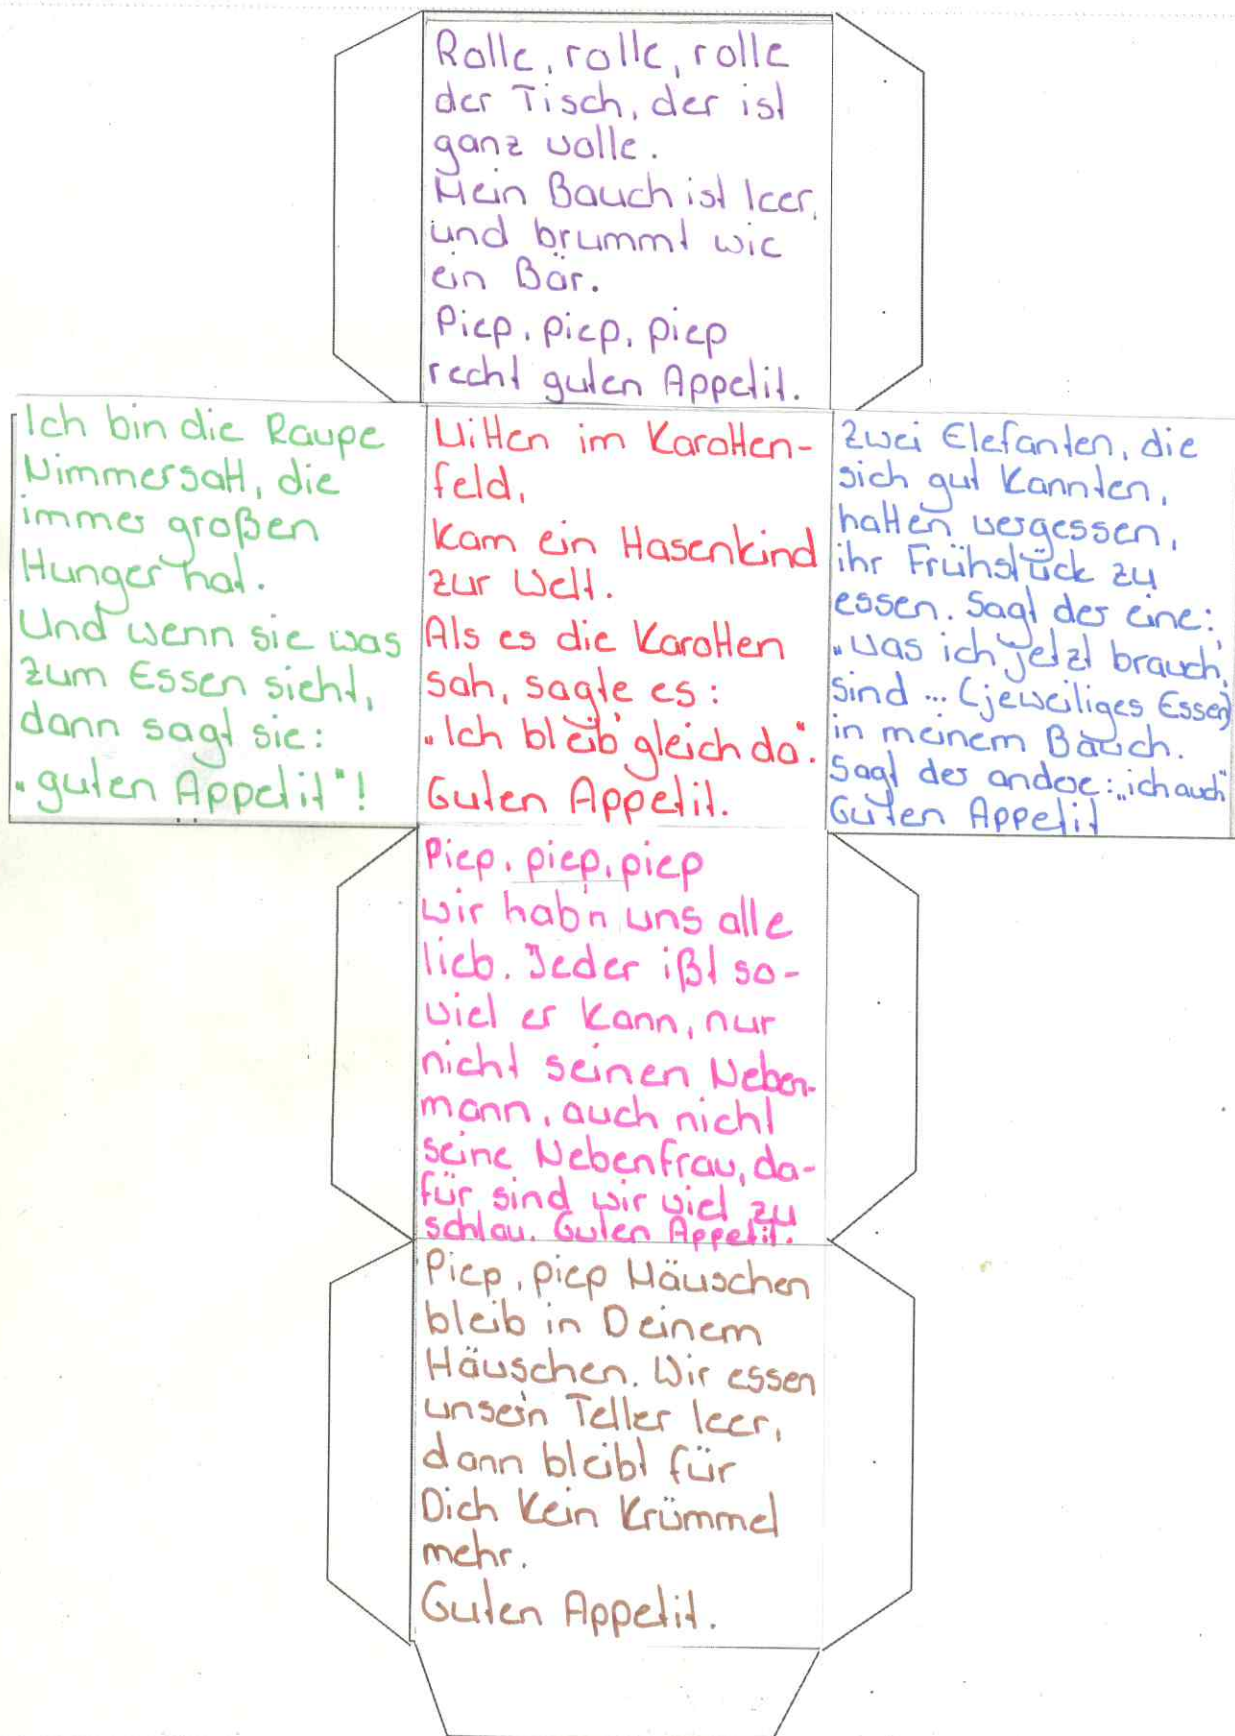 Rolle, rolle, rolle
der Tisch, der ist
ganz volle.
Mein Bauch ist leer,
und brummt wie
ein Bär.
Piep, piep, piep
recht guten Appetit.
Ich bin die Raupe
Nimmersatt, die
immer großen
Hunger hat.
Und wenn sie was
zum Essen sieht,
dann sagt sie:
"guten Appetit"!
Mitten im Karotten-
feld,
kam ein Hasenkind
zur Welt.
Als es die Karotten
sah, sagte es:
"Ich bleib' gleich da".
Guten Appetit.
Zwei Elefanten, die
sich gut kannten,
hatten vergessen,
ihr Frühstück zu
essen. Sagt der eine:
"was ich jetzt brauch,
sind ... (jeweiliges Essen)
in meinem Bauch.
Sagt der andere: „ich auch"
Guten Appetit
Piep, piep, piep
wir hab'n uns alle
lieb. Jeder ißt so-
viel er kann, nur
nicht seinen Neben-
mann, auch nicht
seine Nebenfrau, da-
für sind wir viel zu
schlau. Guten Appetit.
Piep, piep Mäuschen
bleib in Deinem
Häuschen. Wir essen
unser'n Teller leer,
dann bleibt für
Dich kein Krümmel
mehr.
Guten Appetit.